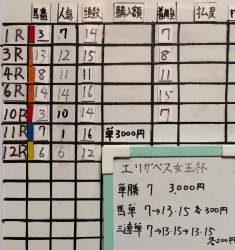 馬番 人気 頭数 購入額 着順 払戻
1R 3 7 14 7
3R 13 12 15 8
4R 8 11 11 11
6R 4 14 16 15
10R 3 10 14 7
11R 7 1 16 単3000円
12R 6 6 12
エリザベス女王杯
単勝 7 3,000円
馬単 7→13.15 各300円
三連単 7→13.15→13.15
各200円